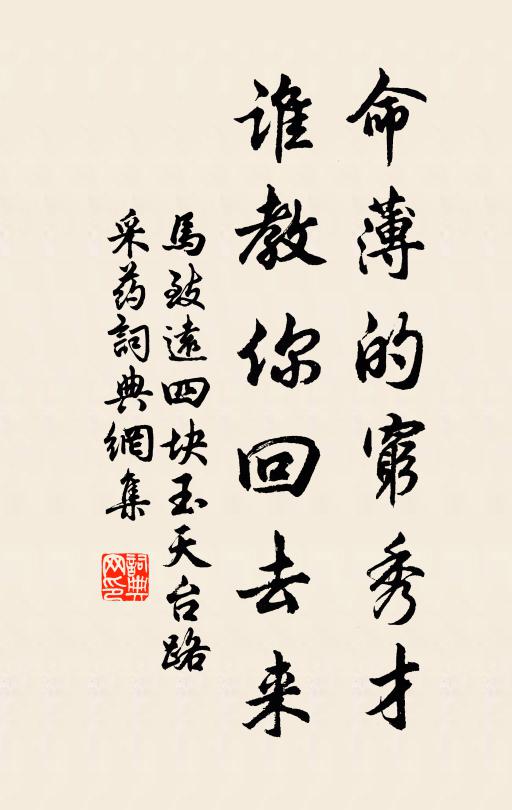 命薄的窮秀才
誰教你回去来
馬致遠四块玉天台路
采药詞典網集
詞典网印